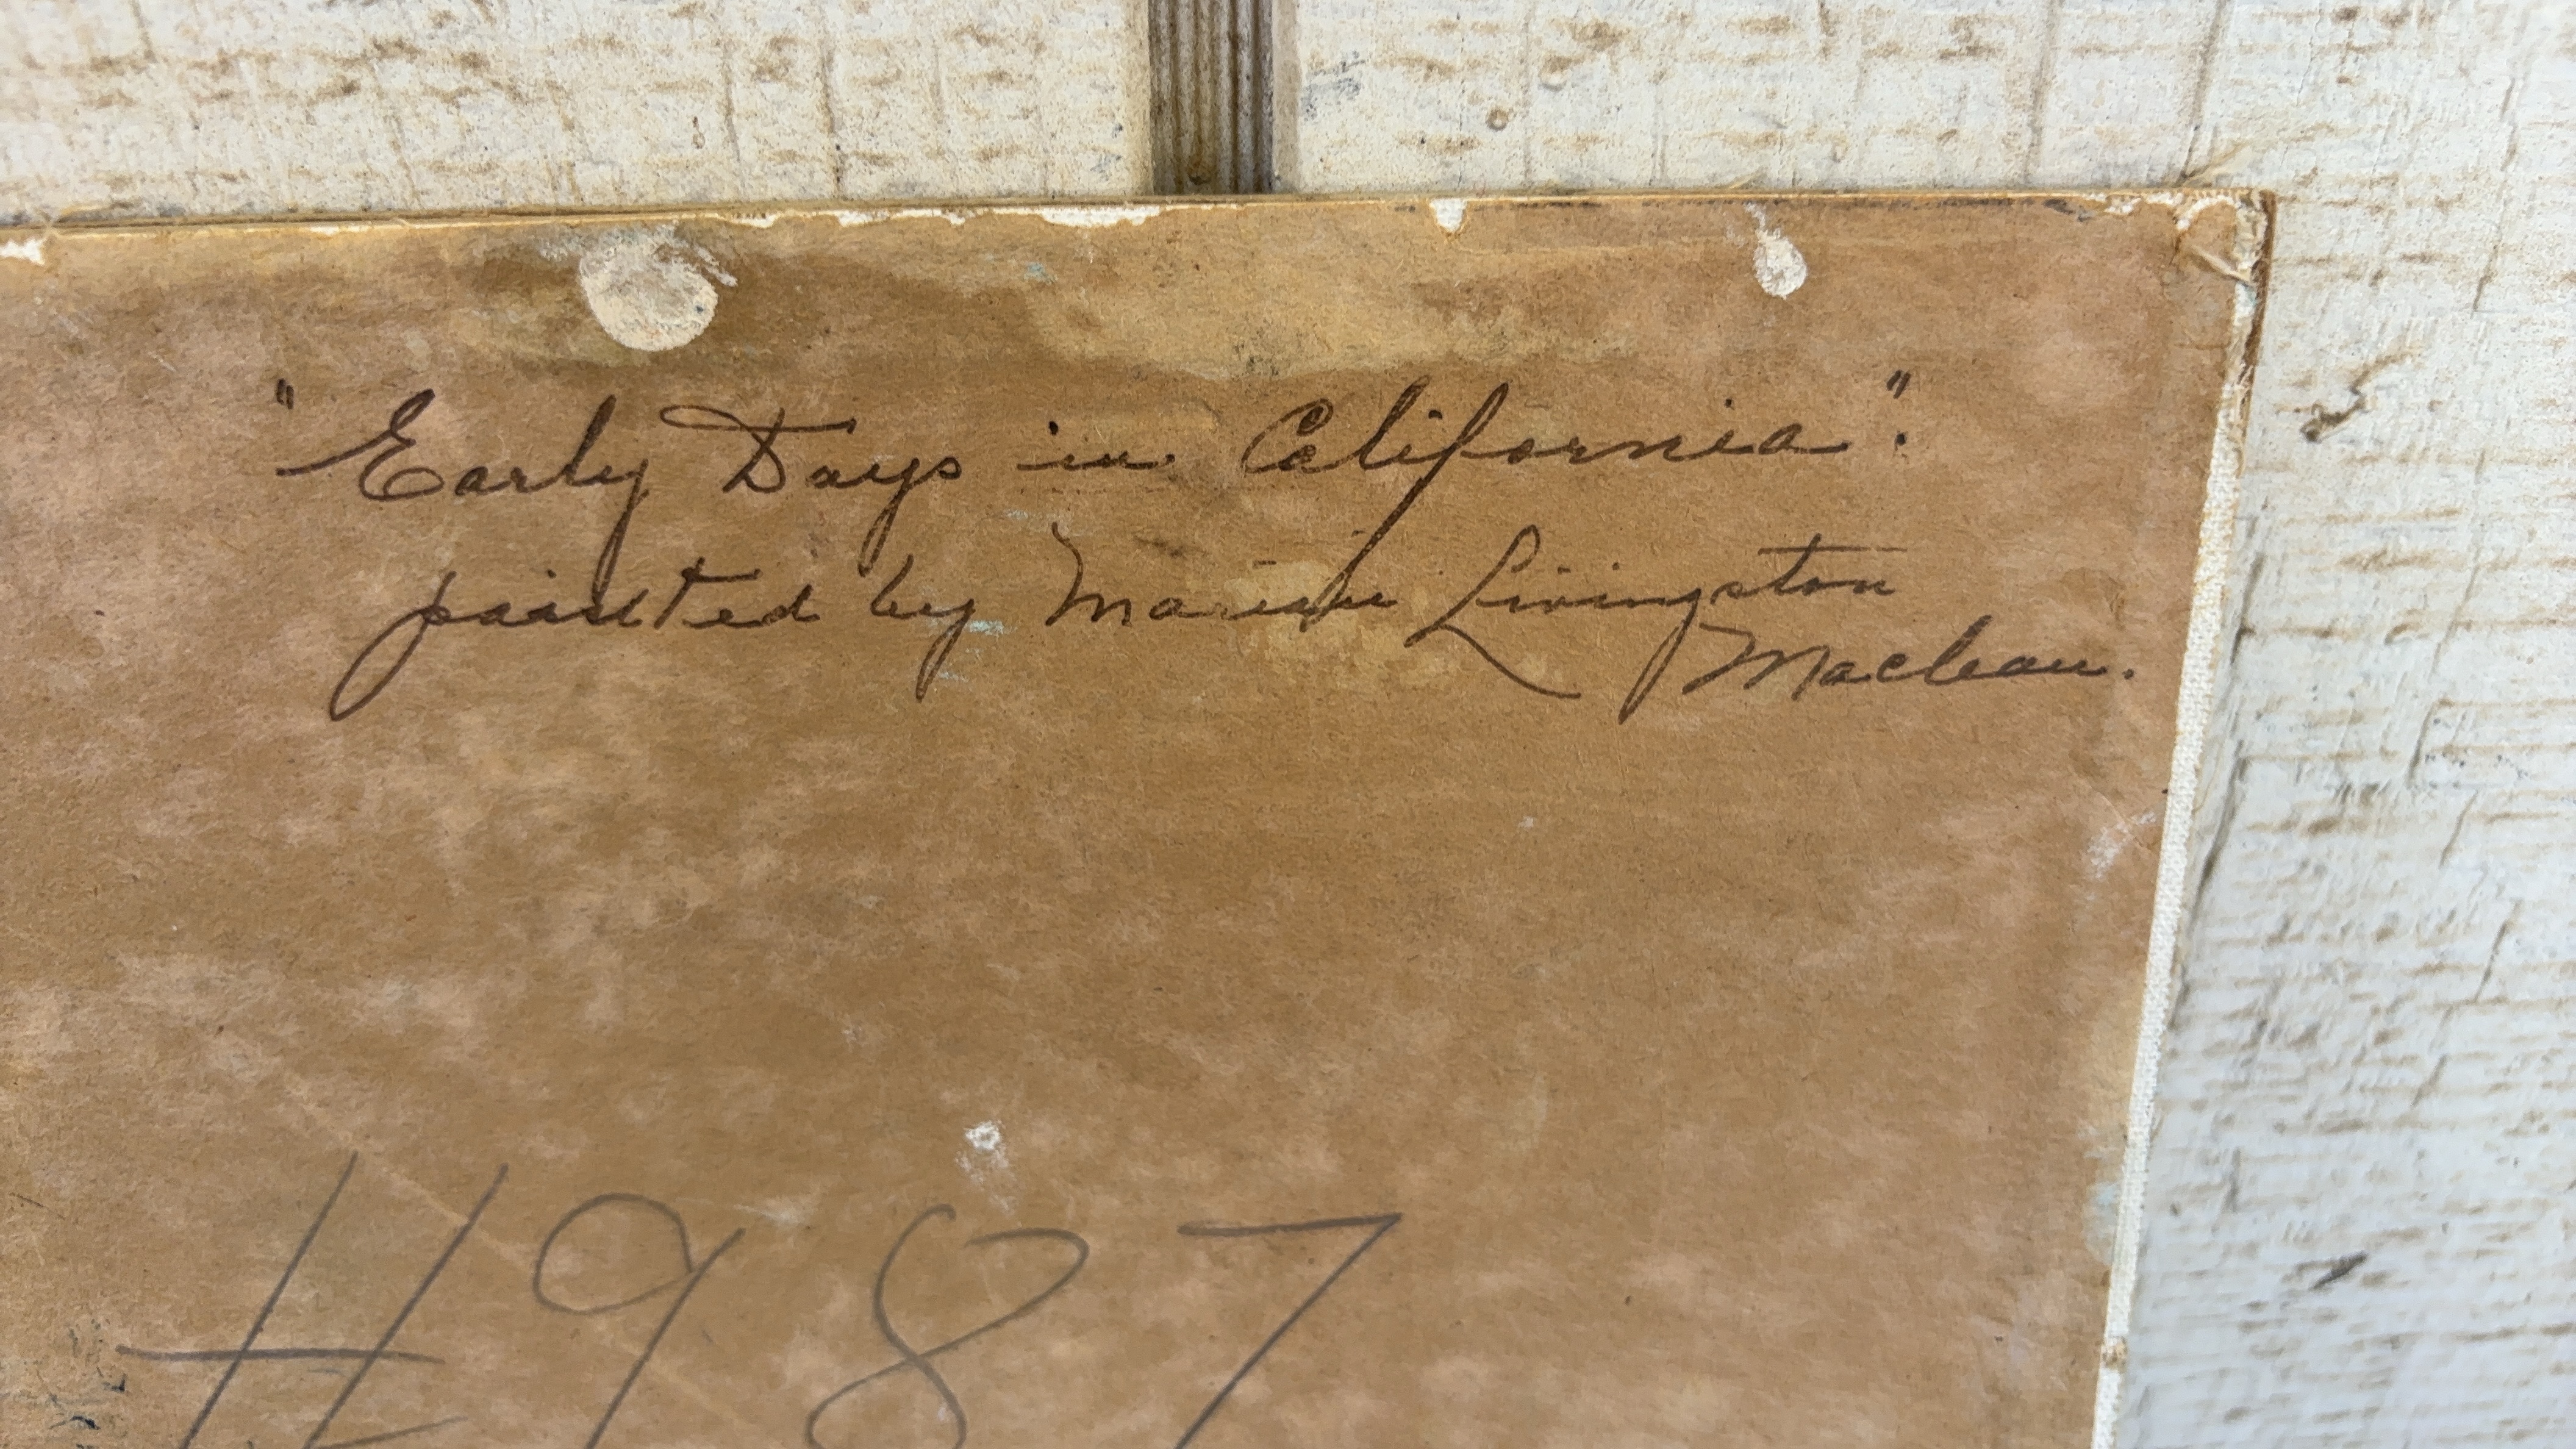 "Early Days in California".
painted by Marian Livingston
Maclean.
#987